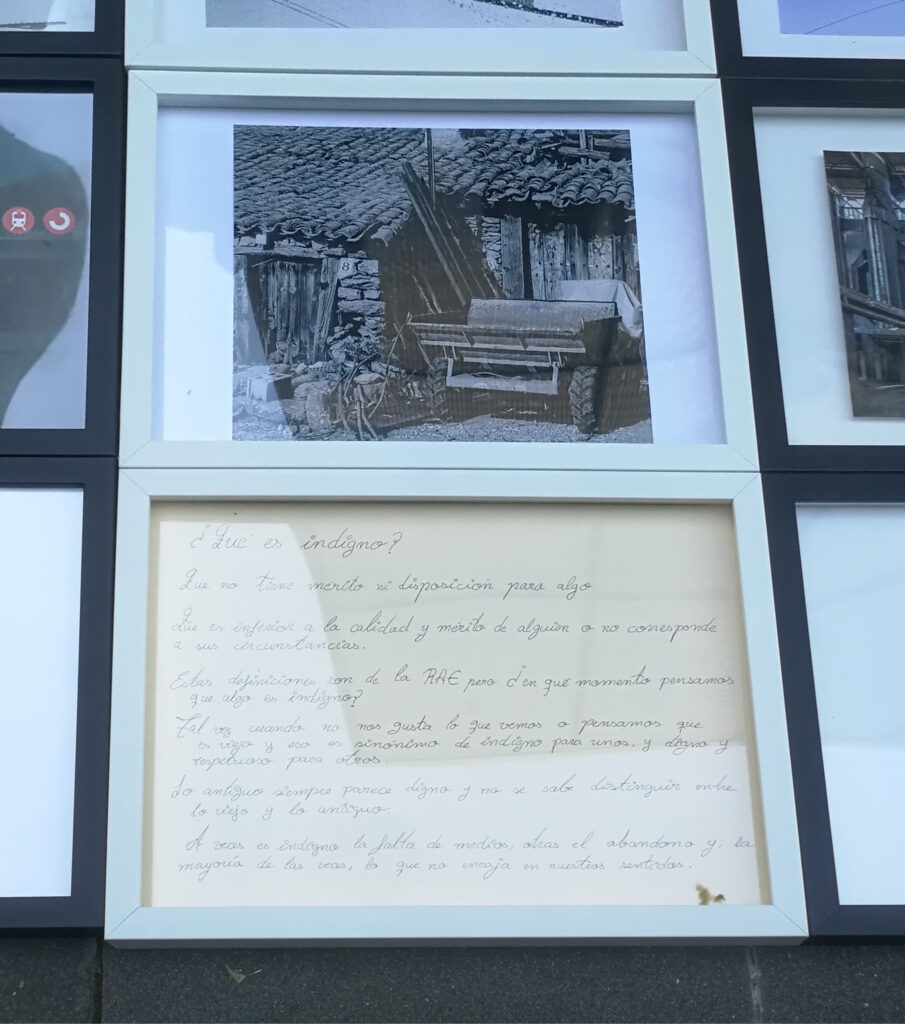 8
¿Qué es indigno?
Que no tiene mérito ni disposición para algo
Que es inferior a la calidad y mérito de alguien o no corresponde
a sus circunstancias.
Estas definiciones son de la RAE pero ¿en qué momento pensamos
que algo es indigno?
Tal vez cuando no nos gusta lo que vemos o pensamos que
es viejo y eso es sinónimo de indigno para unos, y digno y
respetuoso para otros.
Lo antiguo siempre parece digno y no se sabe distinguir entre
lo viejo y lo antiguo.
A veces es indigno la falta de medios, otras el abandono y, la
mayoría de las veces, lo que no encaja en nuestros sentidos.